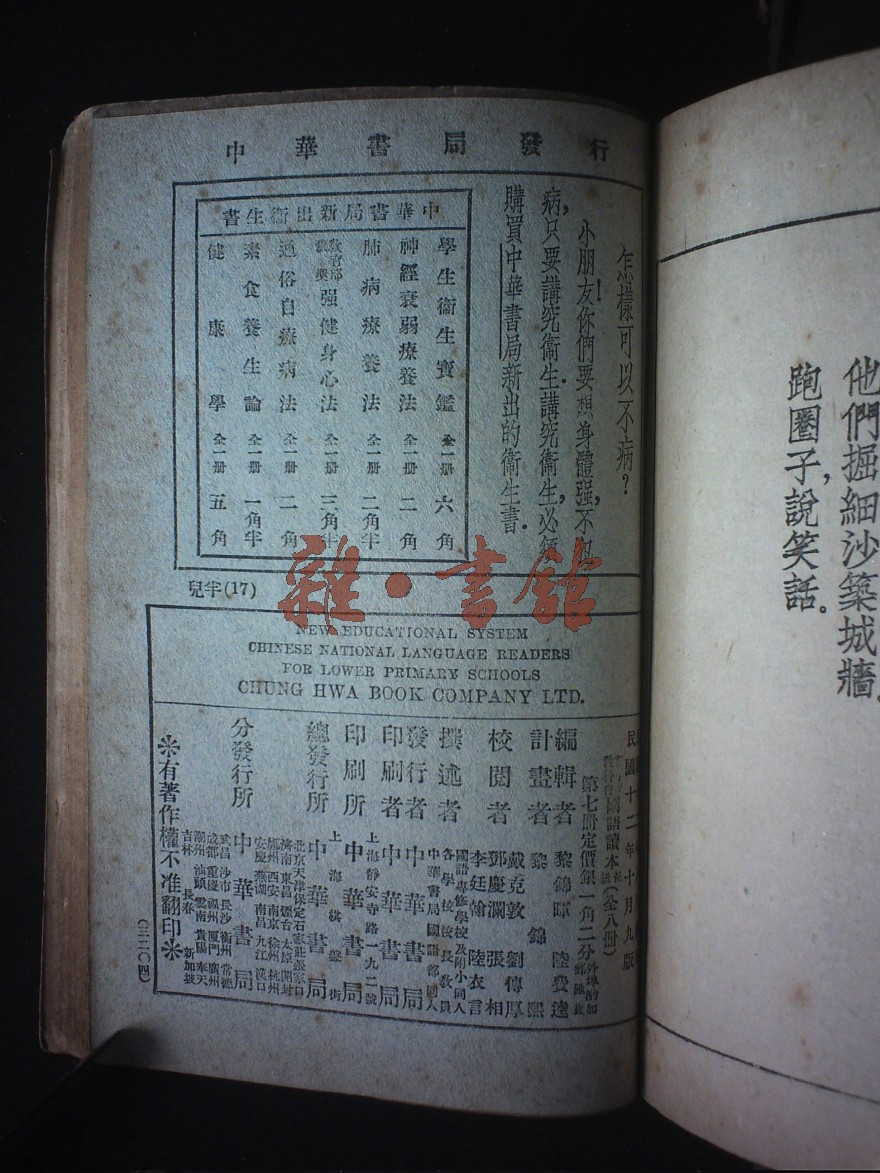 中華書局發行
怎樣可以不病？
小朋友！你們要想身體强，不
病，只要講究衛生．講究衛生，必須
購買中華書局新出的衛生書．
中華書局新出衛生書
學生衛生寶鑑 全一册 六角
神經衰弱療養法 全一册 二角
肺病療養法 全一册 二角半
教育部 强健身心法 全一册 三角半
通俗自療病法 全一册 二角
素食養生論 全一册 一角半
健康學 全一册 五角
兒半(17)
雜·書館
NEW EDUCATIONAL SYSTEM
CHINESE NATIONAL LANGUAGE READERS
FOR LOWER PRIMARY SCHOOLS
CHUNG HWA BOOK COMPANY LTD.
民國十二年十月九版
國語讀本（全八册）
第七册定價銀一角二分
編輯者 黎錦暉 陸費逵
計畫者 黎錦熙
校閱者 戴克敦 劉傳厚
鄧慶瀾 張相
李廷翰 陸衣言
撰述者 國語專修學校及附小同人
各學校校長教員
中華書局國語部同人
發行者 中華書局
印刷者 中華書局
印刷所 上海靜安寺路一九二號
中華書局
總發行所 上海棋盤街
中華書局
分發行所 中華書局
北京天津保定石家莊張家口
濟南東昌煙台太原開封
鄭州西安南京徐州杭州
安慶蕪湖南昌九江漢口
武昌沙市長沙衡州常德
成都重慶福州厦門廣州
潮州汕頭雲南貴陽奉天
吉林長春新加坡
※有著作權不准翻印※
（三二〇四）
他們掘細沙築城牆，
跑圈子，說笑話。